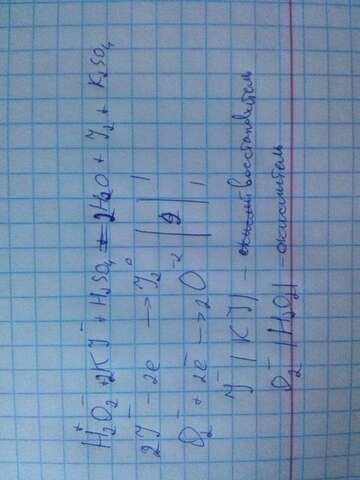 H₂⁺O₂⁻ + 2KJ⁻ + H₂SO₄ = 2H₂O + J₂ + K₂SO₄
2J⁻ - 2e → J₂⁰ | 2 | 1
O₂⁻ + 2e → 2O⁻² | | 1
J⁻ (KJ) - восстановитель
O₂⁻ (H₂O₂) - окислитель